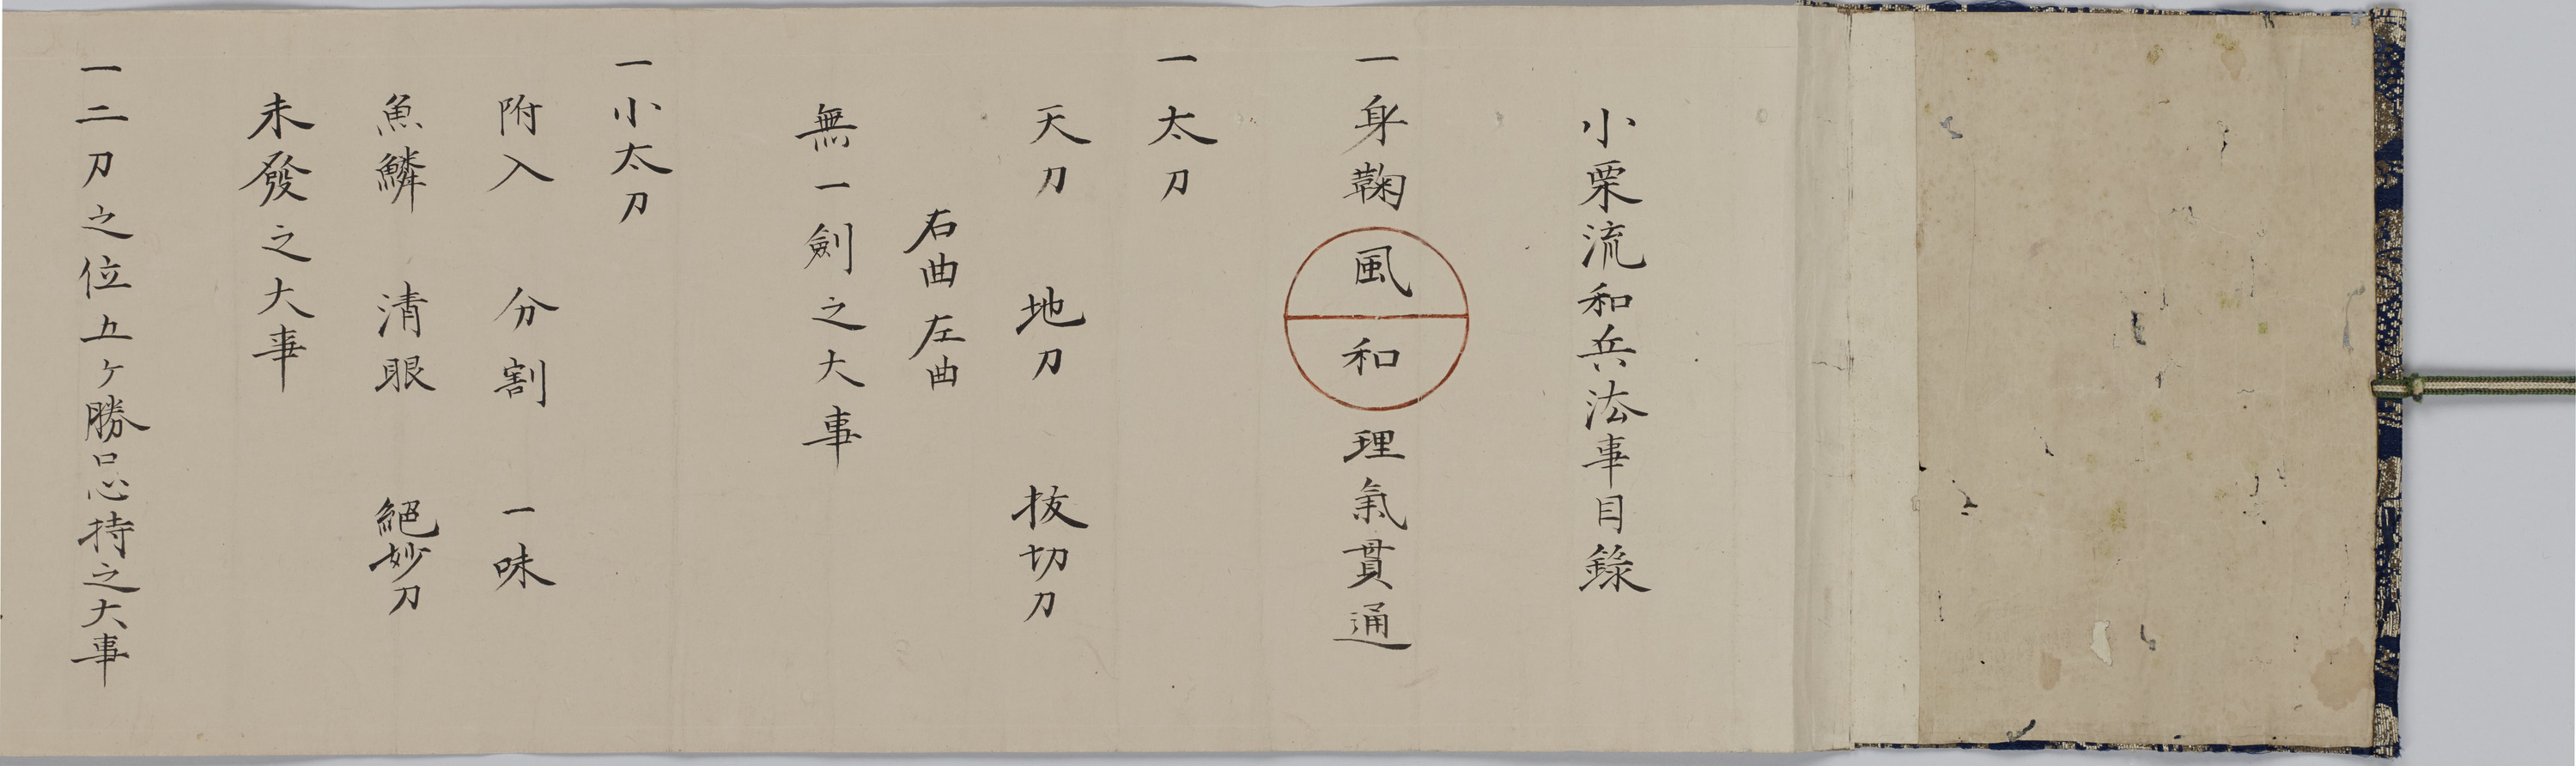 小栗流和兵法事目錄
一身鞠風和理氣貫通
一太刀
天刀 地刀 抜切刀
右曲左曲
無一劍之大事
一小太刀
附入 分割 一味
魚鱗 清眼 絕妙刀
未發之大事
一二刀之位五ヶ勝口心持之大事